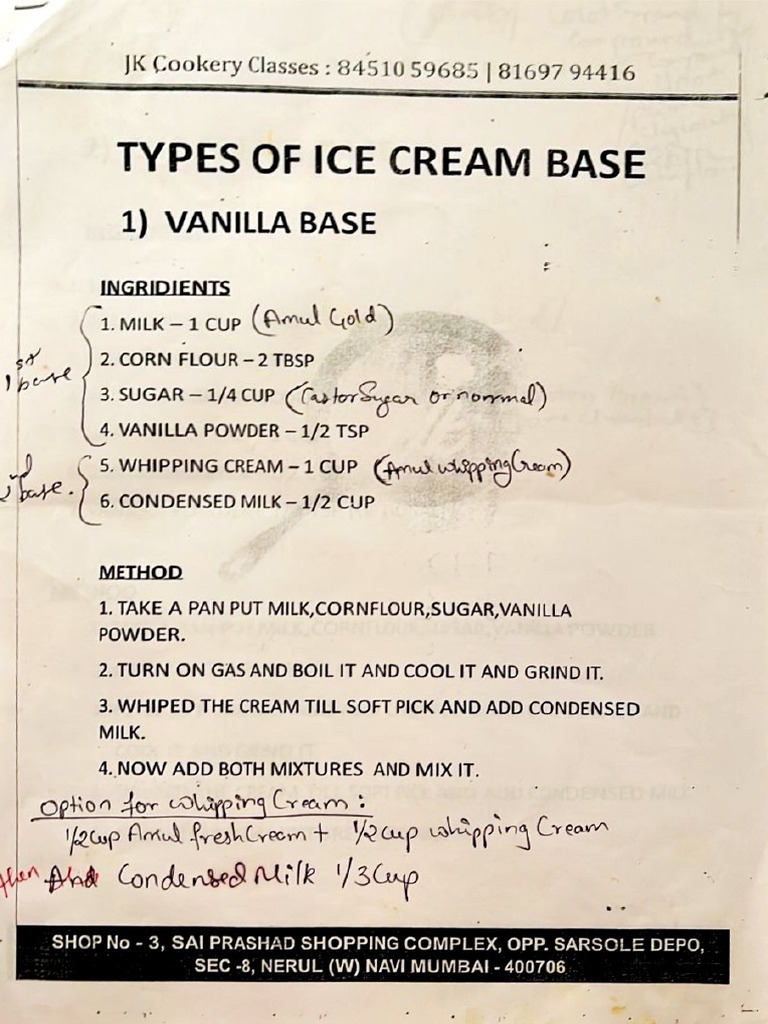 JK Cookery Classes : 84510 59685 | 81697 94416
TYPES OF ICE CREAM BASE
1) VANILLA BASE
INGRIDIENTS
1. MILK – 1 CUP (Amul Gold)
2. CORN FLOUR – 2 TBSP
1st base
3. SUGAR – 1/4 CUP (Castor Sugar or normal)
4. VANILLA POWDER – 1/2 TSP
5. WHIPPING CREAM – 1 CUP (Amul whipping Cream)
2nd base.
6. CONDENSED MILK – 1/2 CUP
METHOD
1. TAKE A PAN PUT MILK,CORNFLOUR,SUGAR,VANILLA
POWDER.
2. TURN ON GAS AND BOIL IT AND COOL IT AND GRIND IT.
3. WHIPED THE CREAM TILL SOFT PICK AND ADD CONDENSED
MILK.
4. NOW ADD BOTH MIXTURES AND MIX IT.
Option for whipping Cream :
1/2 cup Amul fresh Cream + 1/2 cup whipping Cream
then Add Condensed Milk 1/3 Cup
SHOP No - 3, SAI PRASHAD SHOPPING COMPLEX, OPP. SARSOLE DEPO,
SEC -8, NERUL (W) NAVI MUMBAI - 400706